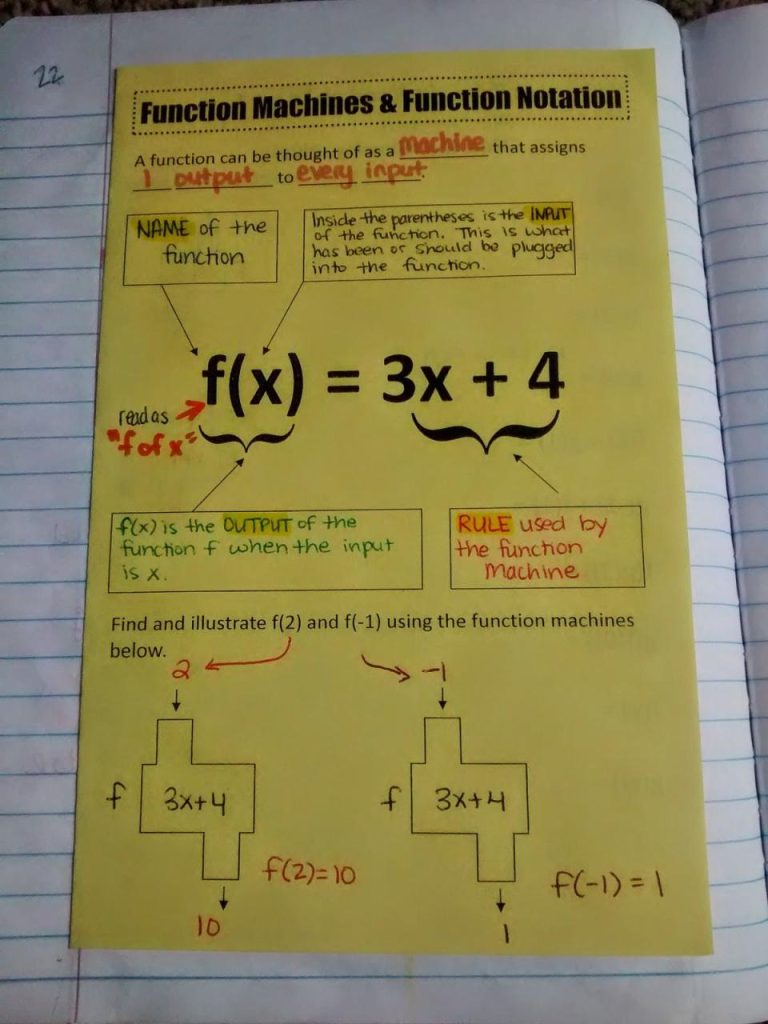 22
Function Machines & Function Notation
A function can be thought of as a machine that assigns
1 output to every input.
NAME of the
function
Inside the parentheses is the INPUT
of the function. This is what
has been or should be plugged
into the function.
f(x) = 3x + 4
read as
"f of x"
f(x) is the OUTPUT of the
function f when the input
is x.
RULE used by
the function
machine
Find and illustrate f(2) and f(-1) using the function machines
below.
2
-1
f
3x+4
f
3x+4
f(2)=10
f(-1)=1
10
1